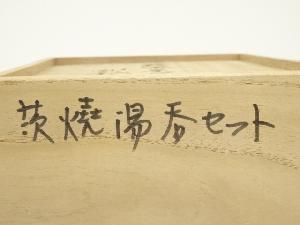 茨焼湯呑セット